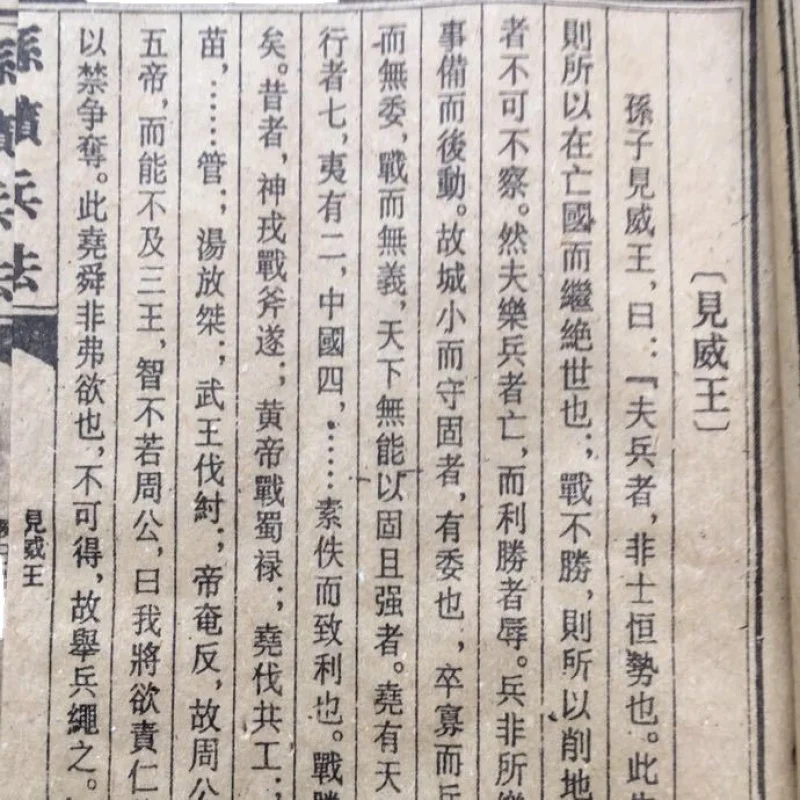 〔見威王〕
孫子見威王，曰：『夫兵者，非士恒勢也。此
則所以在亡國而繼絶世也；戰不勝，則所以削地
者不可不察。然夫樂兵者亡，而利勝者辱。兵非所
事備而後動。故城小而守固者，有委也；卒寡而
而無委，戰而無義，天下無能以固且强者。堯有天
行者七，夷有二，中國四，……素佚而致利也。戰
矣。昔者，神戎戰斧遂；黄帝戰蜀禄；堯伐共工；
苗，……管；湯放桀；武王伐紂；帝奄反，故周公
五帝，而能不及三王，智不若周公，曰我將欲責仁
以禁争奪。此堯舜非弗欲也，不可得，故舉兵繩之。
孫臏兵法
見威王